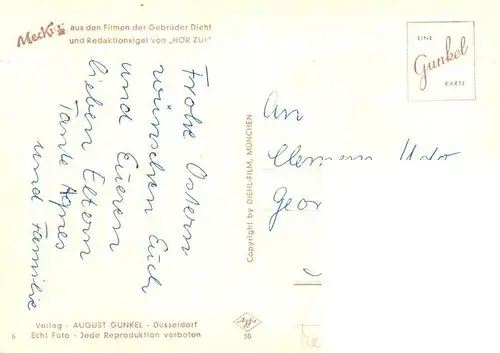 Mecki aus den Filmen der Gebrüder Diehl
und Redaktionsigel von „HÖR ZU!"
Frohe Ostern
wünschen Euch
und Eueren
lieben Eltern
Tante Agnes
und Familie
Copyright by DIEHL-FILM, MÜNCHEN
EINE
Gunkel
KARTE
An
Clemens Udo
Geor
Verlag - AUGUST GUNKEL - Düsseldorf
Echt Foto - Jede Reproduktion verboten
6
Agfa
50